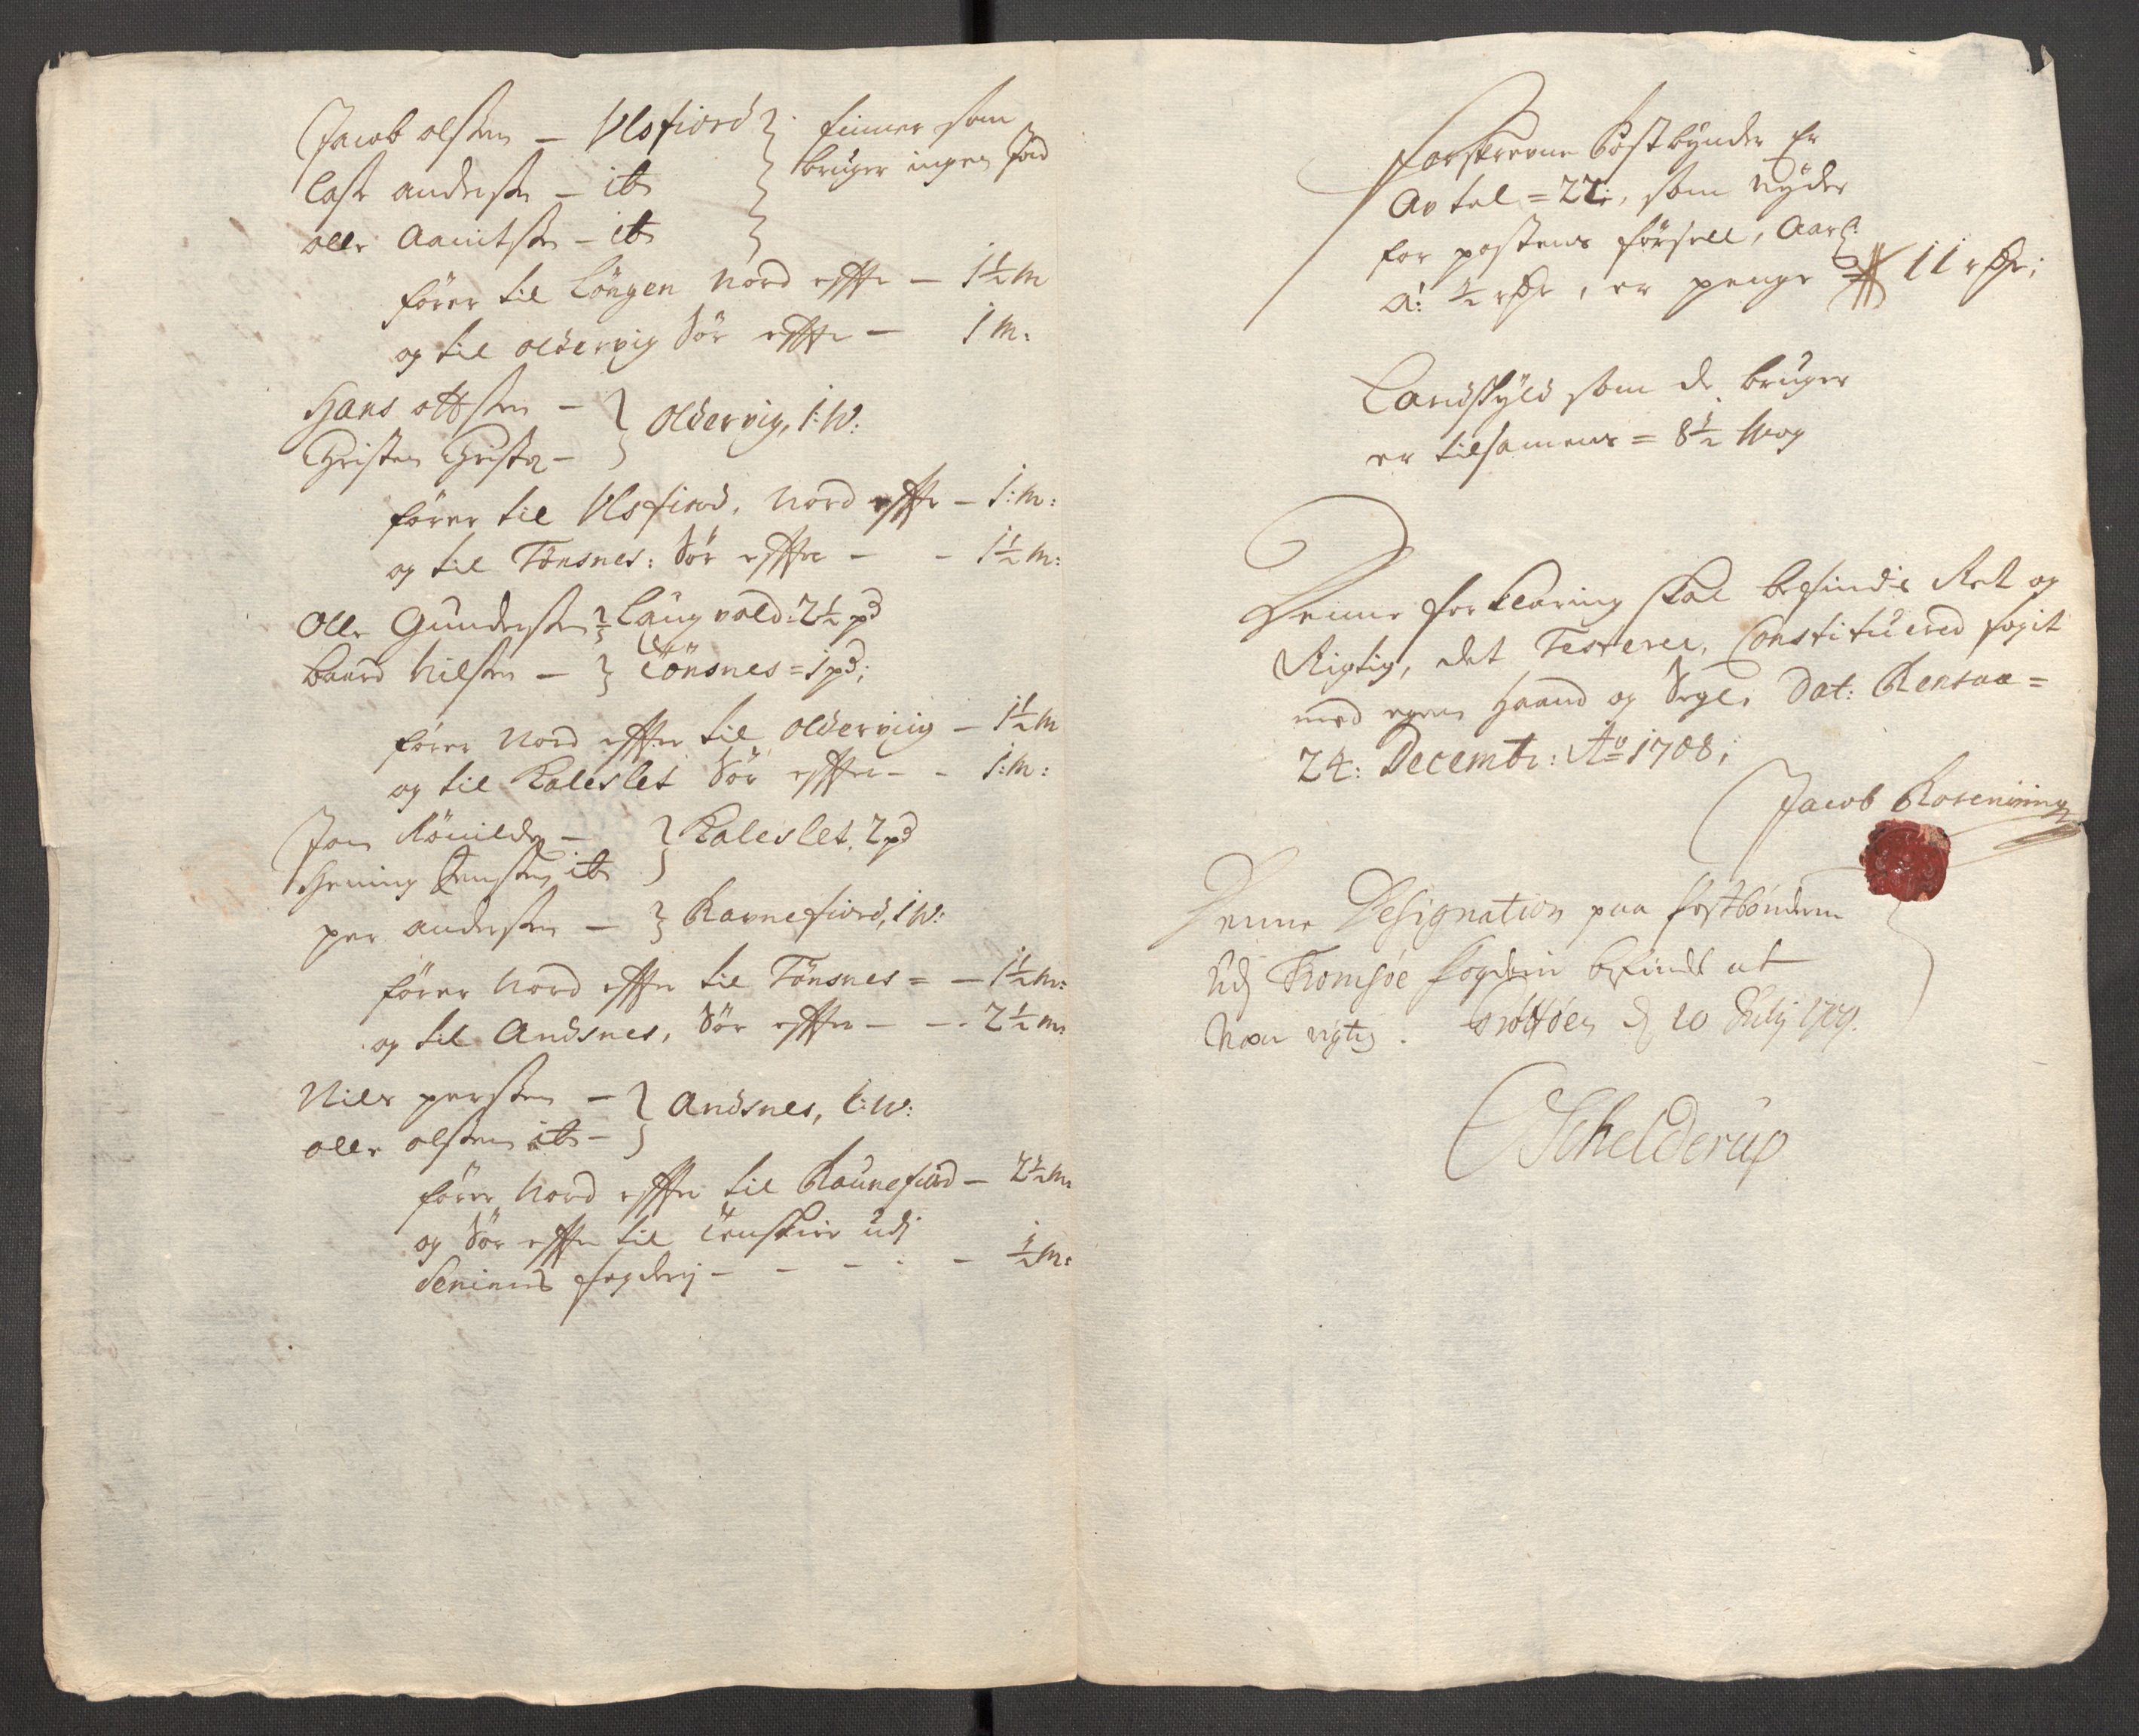 Jacob olssen – Ulsfiord } finner som
Lass anderssen – ib } bruger ingen Jord
olle Aamitssen – ib }
fører til Løngen Nord effter – 1½ M
og til oldervig Sør effter – 1 M:
Hans ottssen – } Oldervig, 1: W:
Christen Christens –
fører til Ulsfiord, Nord effter – 1: M:
og til Tønsnes: Sør effter – – 1½ M:
Olle Gunderssen } Laugvold: 2½ pd
baard Nilssen – } Tønsnes = 1 pd;
fører Nord effter til Oldervig – 1½ M
og til Kaleslet Sør effter – – 1: M:
Jon } Kaleslet, 2 pd
Hening Jenssen ib
per anderssen – } Ravnefiord, 1 W:
fører Nord effter til Tønsnes = – 1½ M:
og til Andsnes, Sør effter – – 2½ M:
Niels perssen – } Andsnes, 1: W:
olle olssen ib –
fører Nord effter til Raunefiord – 2½ M:
og Sør effter til udj
Seniens fogderj – – – – – ½ M:
Forskrevne Postbynder Er
An tal = 22:, som nyder
for postens førsell, Aarl:
A: ½ rdr, er penge 11 rdr;
Landskyld som de bruger
er tilsamens = 8½ Wog
Denne forklaring skal befindis Ret og
Rigtig, det Testerer, Constituered fogit
med egen Haand og Segl, Dat: Rensaa=
24: Decembr: Ao 1708;
Jacob Rosenvinng
Denne Designation paa postbønderne
Udj Tromsøe fogderie befindes at
være rigtig. Trottøen d 20 July 1709.
Schelderup